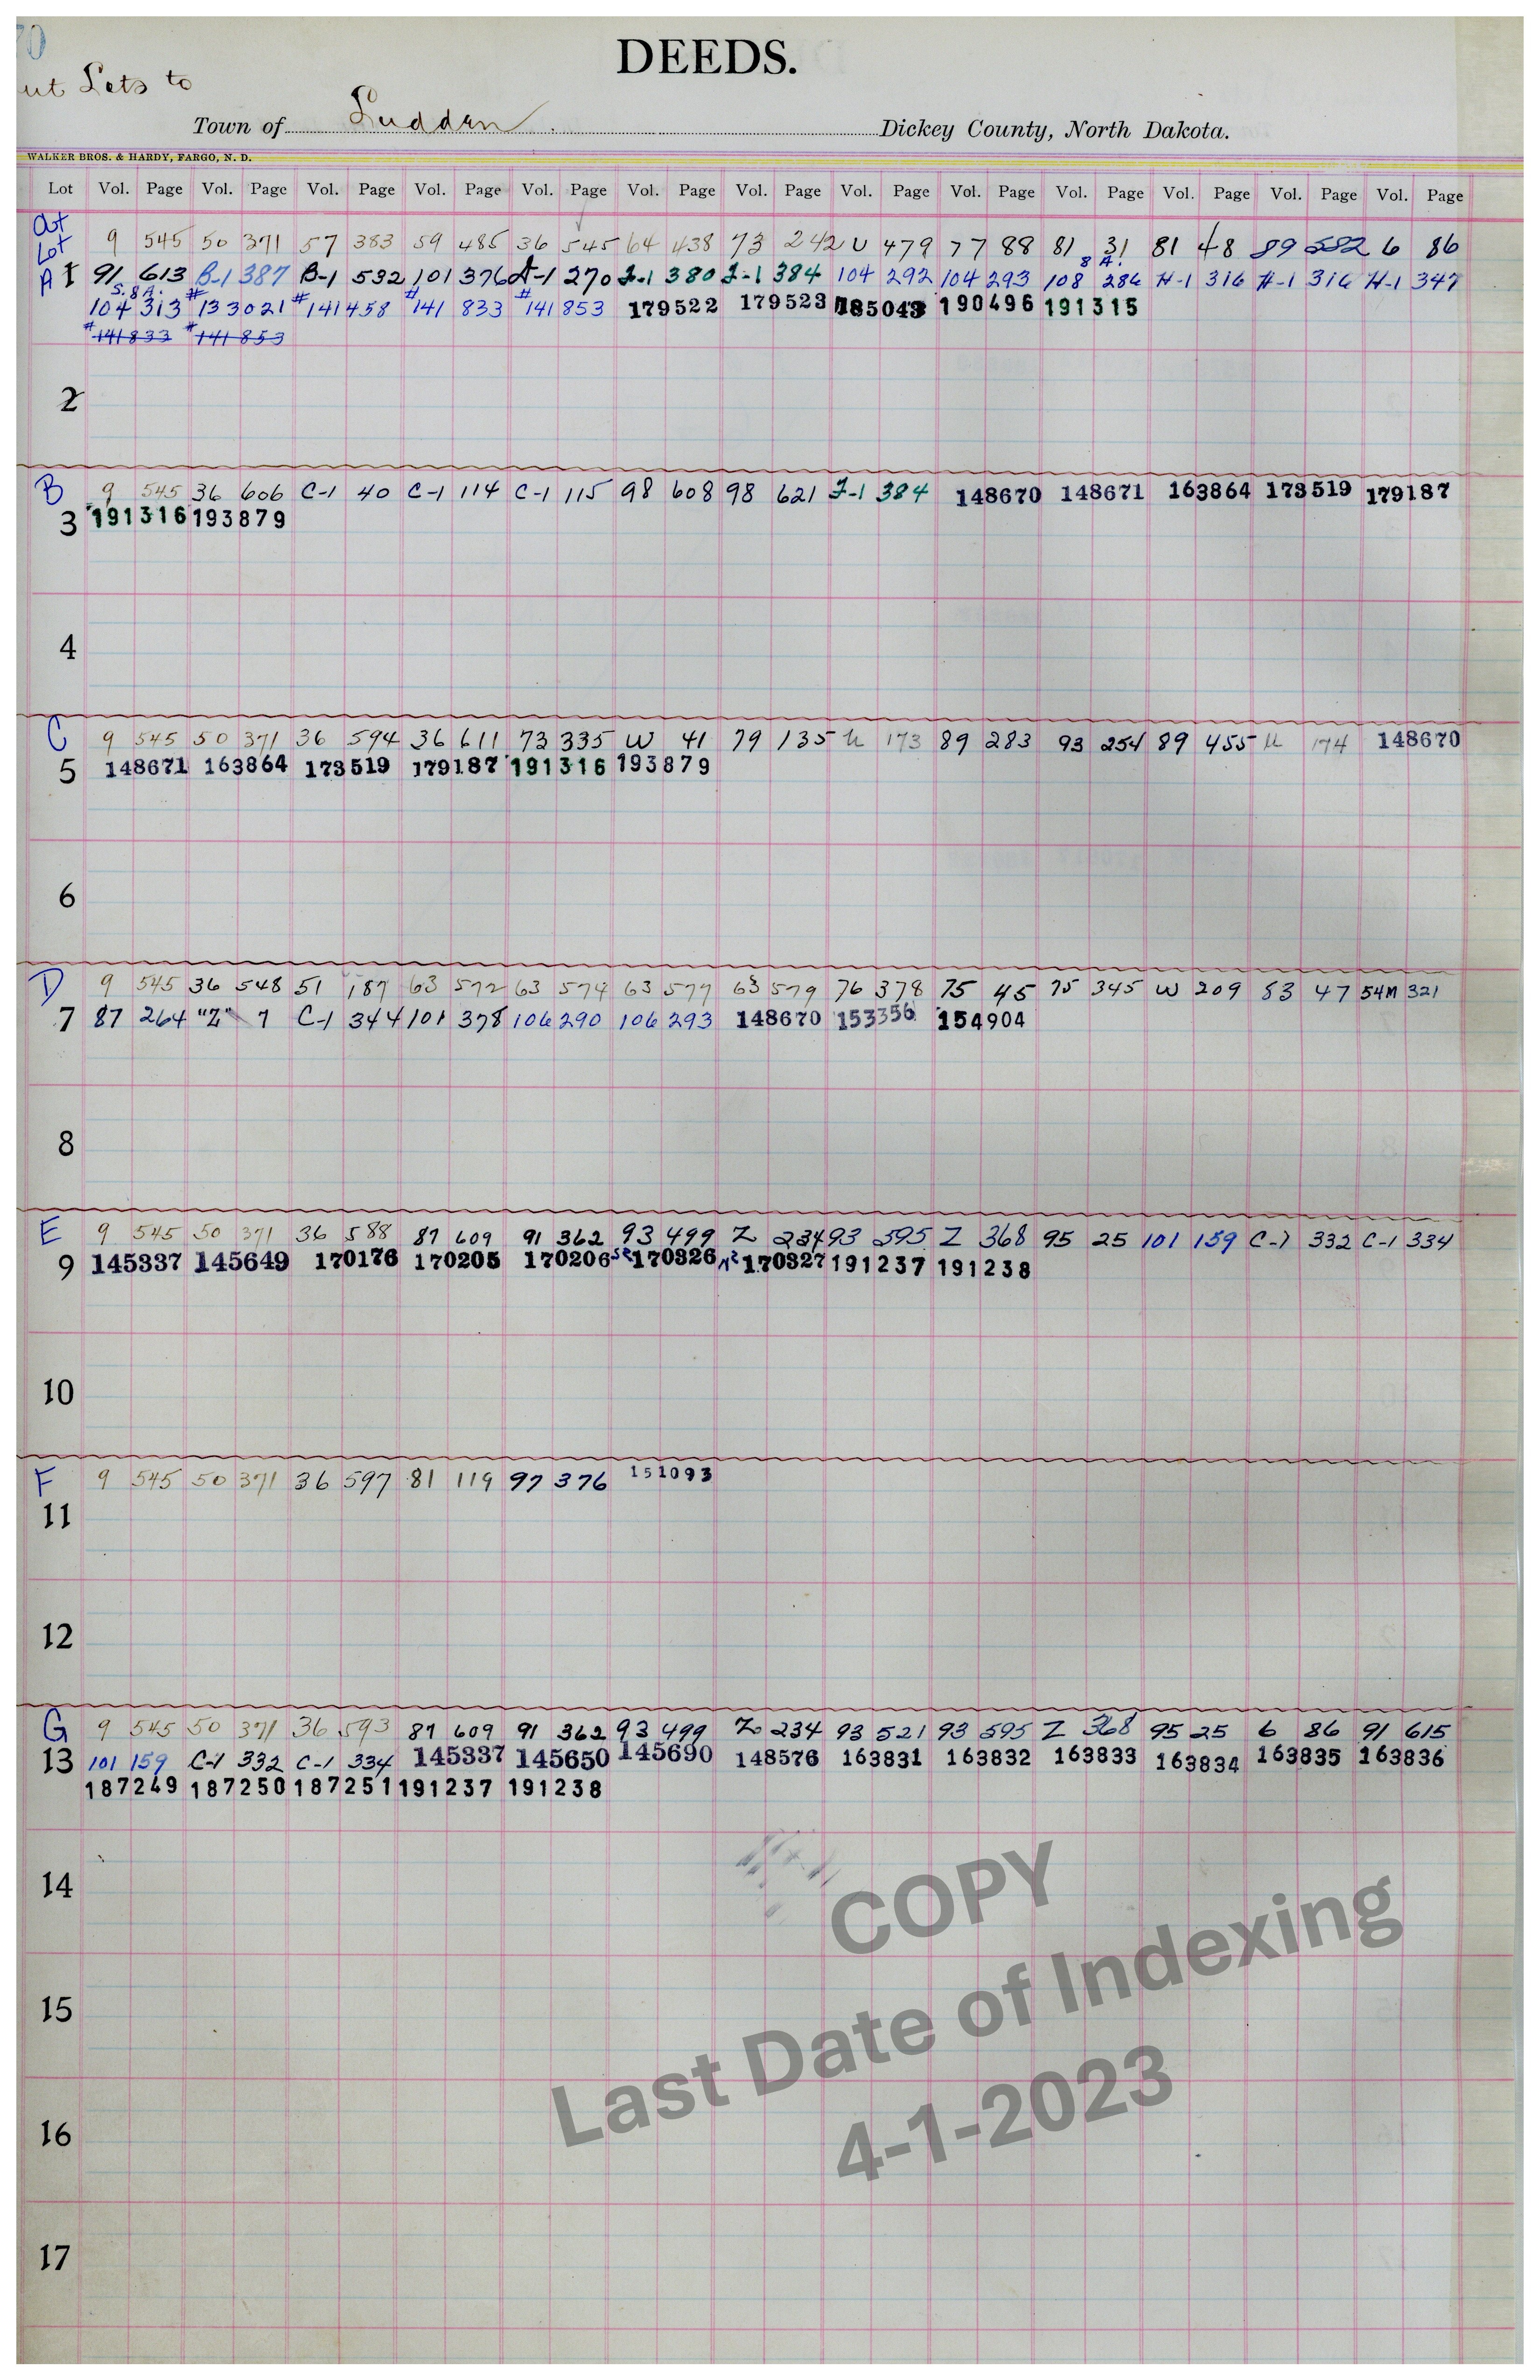 70
DEEDS.
ut Lots to
Town of Ludden Dickey County, North Dakota.
WALKER BROS. & HARDY, FARGO, N. D.
Lot Vol. Page Vol. Page Vol. Page Vol. Page Vol. Page Vol. Page Vol. Page Vol. Page Vol. Page Vol. Page Vol. Page Vol. Page Vol. Page
Out
Lot 9 545 50 371 57 383 59 485 36 545 64 438 73 242 U 479 77 88 81 31 81 48 89 582 6 86
A 1 91 613 B-1 387 B-1 532 101 376 A-1 270 I-1 380 I-1 384 104 292 104 293 108 8 A. 286 H-1 316 H-1 316 H-1 347
S. 8 A.
104 313 #133021 #141458 #141 833 #141 853 179522 179523 185043 190496 191315
#141833 #141853
2
B 9 545 36 606 C-1 40 C-1 114 C-1 115 98 608 98 621 I-1 384 148670 148671 163864 173519 179187
3 191316 193879
4
C 9 545 50 371 36 594 36 611 73 335 W 41 79 135 U 173 89 283 93 254 89 455 U 174 148670
5 148671 163864 173519 179187 191316 193879
6
D 9 545 36 548 51 187 63 572 63 574 63 577 63 579 76 378 75 45 75 345 W 209 83 47 54M 321
7 87 264 "Z" 7 C-1 344 101 378 106 290 106 293 148670 153356 154904
8
E 9 545 50 371 36 588 87 609 91 362 93 499 Z 234 93 595 Z 368 95 25 101 159 C-1 332 C-1 334
9 145337 145649 170176 170205 170206 S2 170326 N2 170327 191237 191238
10
F 9 545 50 371 36 597 81 119 97 376 151093
11
12
G 9 545 50 371 36 593 87 609 91 362 93 499 Z 234 93 521 93 595 Z 368 95 25 6 86 91 615
13 101 159 C-1 332 C-1 334 145337 145650 145690 148576 163831 163832 163833 163834 163835 163836
187249 187250 187251 191237 191238
14
15
16
17
COPY
Last Date of Indexing
4-1-2023